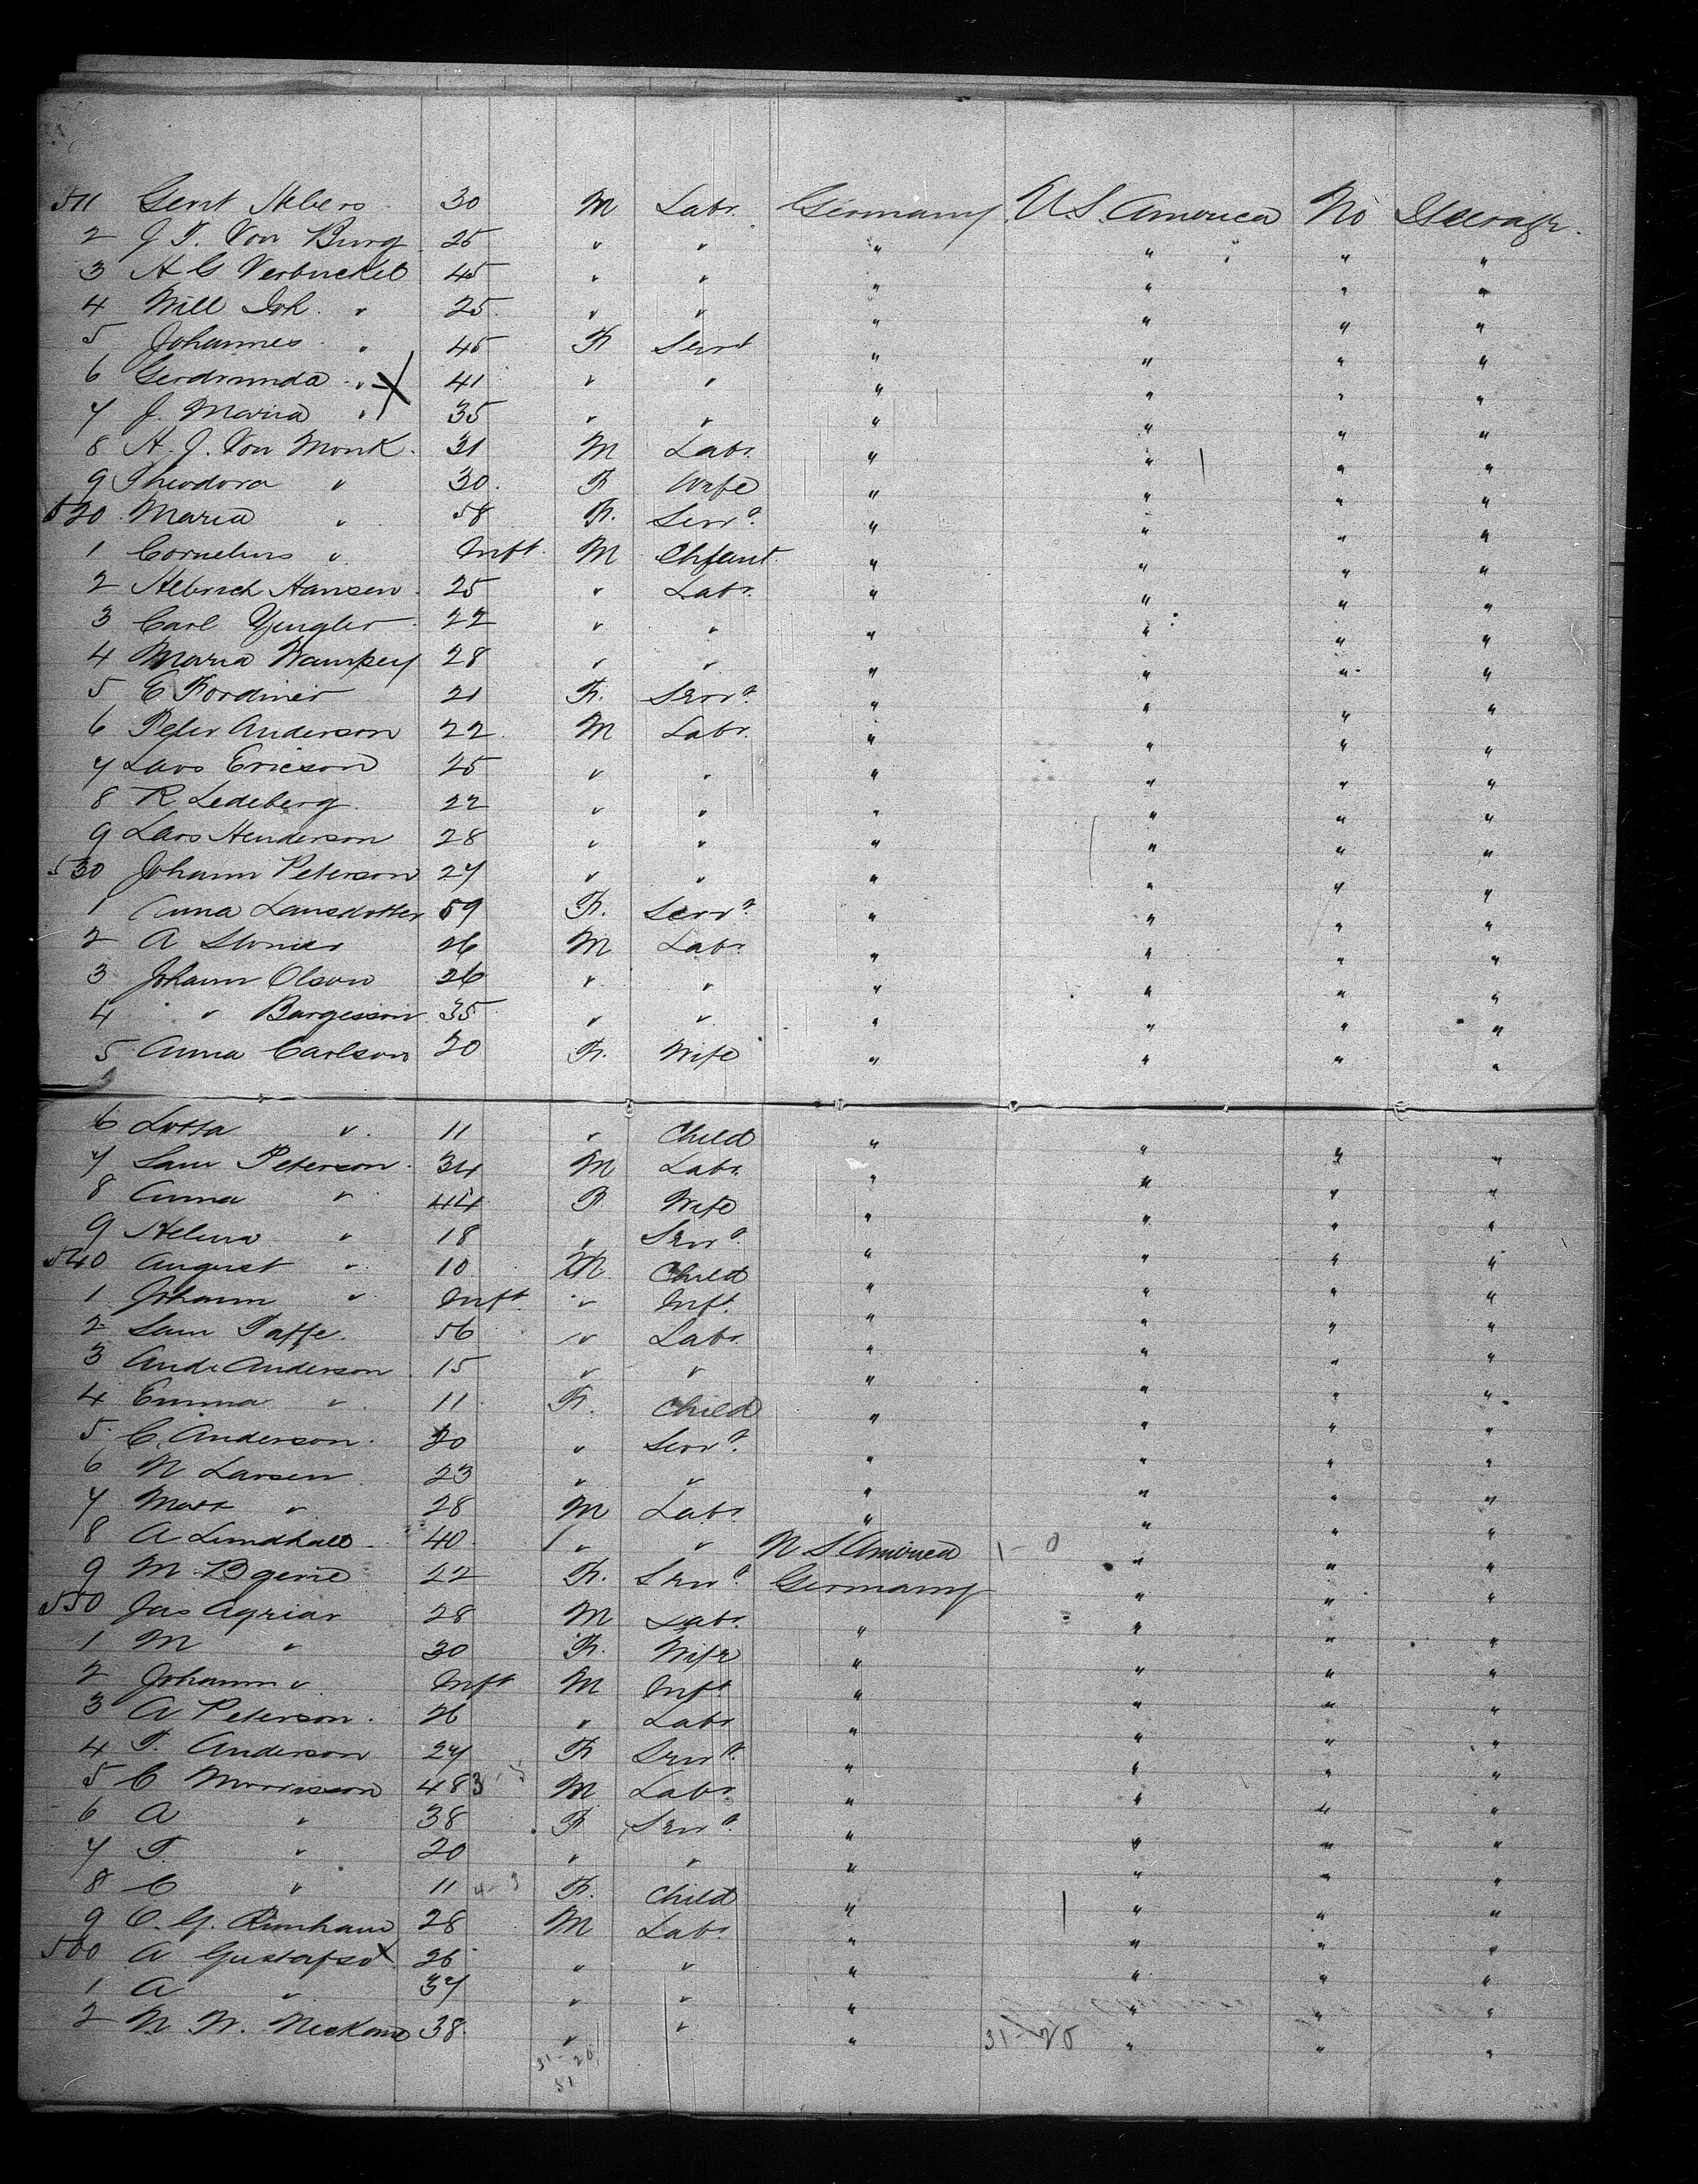 511 Gerrit Albers 30 M Labr. Germany U.S. America No Steerage.
2 J T. Von Burg 25 " " " " " "
3 A G Verbucket 45 " " " " " "
4 Will Joh. " 25 " " " " " "
5 Johannes " 45 F Servt " " " "
6 Gerdrunda " X 41 " " " " " "
7 J. Maria " 35 " " " " " "
8 A. J. Von Monk. 31 M Labr. " " " "
9 Theodora " 30. F Wife " " " "
520 Maria " 58 F. Servt. " " " "
1 Cornelius " Inft. M Infant. " " " "
2 Hansen 25 " Labr. " " " "
3 Carl 22 " " " " " "
4 Maria 28 " " " " " "
5 E Fordiner 21 F. Servt. " " " "
6 Peter Anderson 22 M Labr. " " " "
7 Lars Ericson 25 " " " " " "
8 R Ledeberg. 22 " " " " " "
9 Lars Henderson 28 " " " " " "
530 Johann Peterson 27 " " " " " "
1 Anna Larsdotter 59 F. Servt. " " " "
2 A 26 M Labr " " " "
3 Johann Olson 26 " " " " " "
4 " Bargesson 35 " " " " " "
5 Anna Carlson 20 F. Wife " " " "
6 Lotta " 11 " Child " " " "
7 Sam Peterson. 34 M Labr. " " " "
8 Anna " 44 F Wife " " " "
9 Helena " 18 " Servt. " " " "
540 August " 10 M. Child " " " "
1 Johann " Inft. " Inft. " " " "
2 Sam Taffe. 56 " Labr. " " " "
3 And. Anderson 15 " " " " " "
4 Emma " 11 F. Child " " " "
5 C. Anderson. 20 " Servt. " " " "
6 N Larsen 23 " " " " " "
7 Matt " 28 M Labr. " " " "
8 A Lundhall 40 " " N S America 1-0 " " "
9 M 22 F. Servt. Germany " " "
550 Jas Agriar 28 M Labr. " " " "
1 M " 30 F. Wife " " " "
2 Johann " Inft M Inft. " " " "
3 A Peterson. 26 " Labr " " " "
4 T. Anderson 27 F Servt. " " " "
5 C Morrisson 48 3 M Labr. " " " "
6 A " 38 F Servt. " " " "
7 T. " 20 " " " " " "
8 C " 11 F. Child " " " "
9 C. G. 28 M Labr " " " "
560 A Gustafso X 26 " " " " " "
1 A " 37 " " " " " "
2 N. W. 38. " " " 31-20 " " "
31-20
51